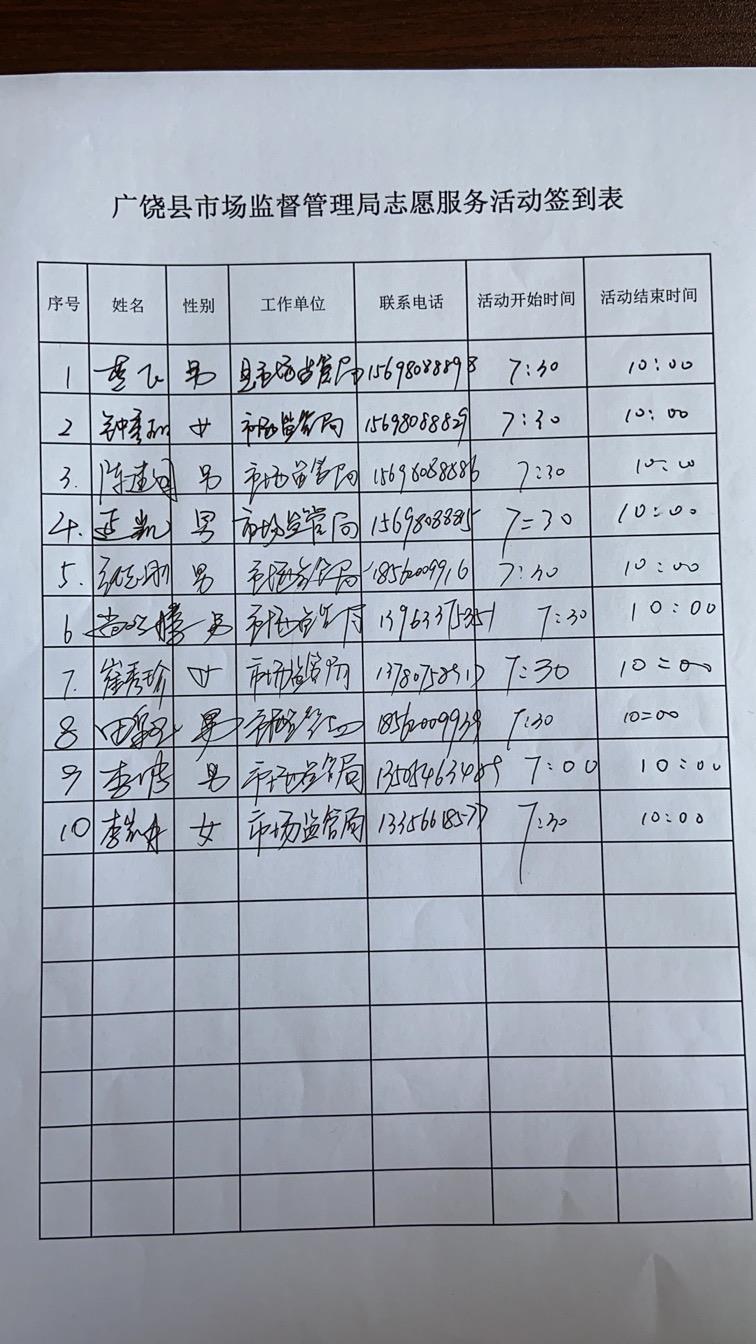 广饶县市场监督管理局志愿服务活动签到表
序号 姓名 性别 工作单位 联系电话 活动开始时间 活动结束时间
1 男 县市场监管局 15698088898 7:30 10:00
2 女 市场监管局 15698088829 7:30 10:00
3. 陈建国 男 市场监管局 15698088886 7:30 10:00
4. 男 市场监管局 15698088815 7:30 10:00
5. 男 市场监管局 18562009916 7:30 10:00
6 男 市场监管局 13963375351 7:30 10:00
7. 崔秀珍 女 市场监管局 7:30 10:00
8 田 男 18562009939 7:30 10:00
9 李 男 市场监管局 7:00 10:00
10 李 女 市场监管局 13356618577 7:30 10:00